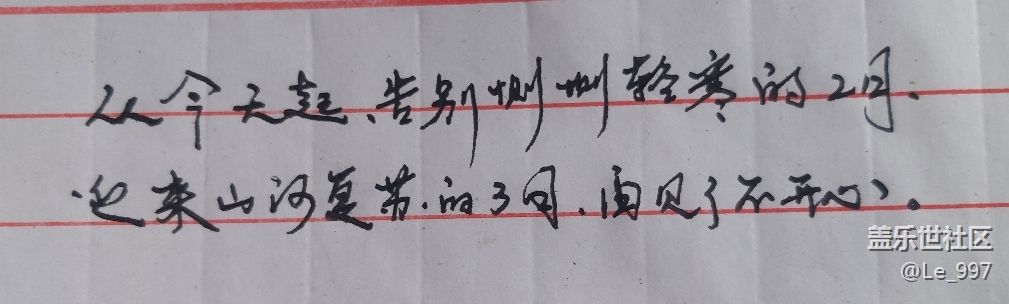 从今天起、告别恻恻轻寒的2月、
迎来山河复苏的3月、再见了不开心。
盖乐世社区
@Le_997